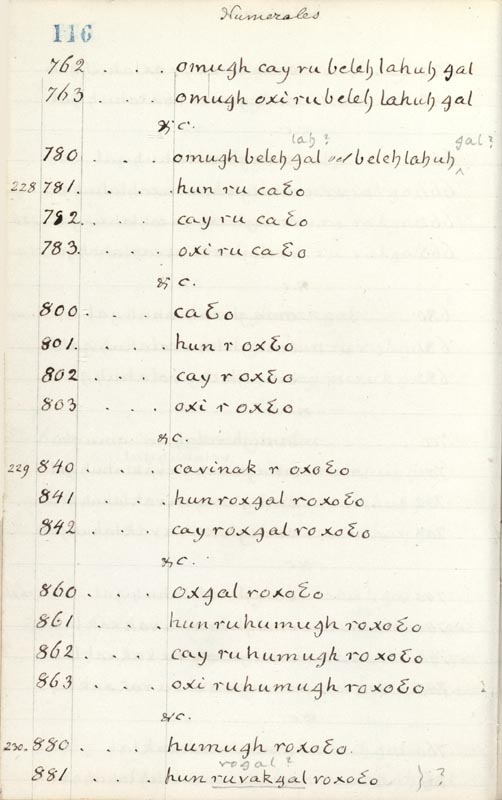 Numerales
116
762 . . . omugh cay ru beleh lahuh gal
763 . . . omugh oxi ru beleh lahuh gal
&c.
lah? gal?
780 . . . omugh beleh gal vel beleh lahuh ^
228 781. . . hun ru caƐo
782. . . cay ru caƐo
783. . . oxi ru caƐo
&c.
800. . . caƐo
801. . . hun r oxƐo
802 . . . cay r oxƐo
803 . . . oxi r oxƐo
&c.
229 840 . . . cavinak r oxoƐo
841 . . . hun roxgal roxoƐo
842 . . . cay roxgal roxoƐo
&c.
860 . . . oxgal roxoƐo
861 . . . hun ruhumugh roxoƐo
862 . . . cay ruhumugh roxoƐo
863 . . . oxi ruhumugh roxoƐo
&c.
230. 880 . . . humugh roxoƐo.
rogal?
881 . . . hun ruvakgal roxoƐo }?